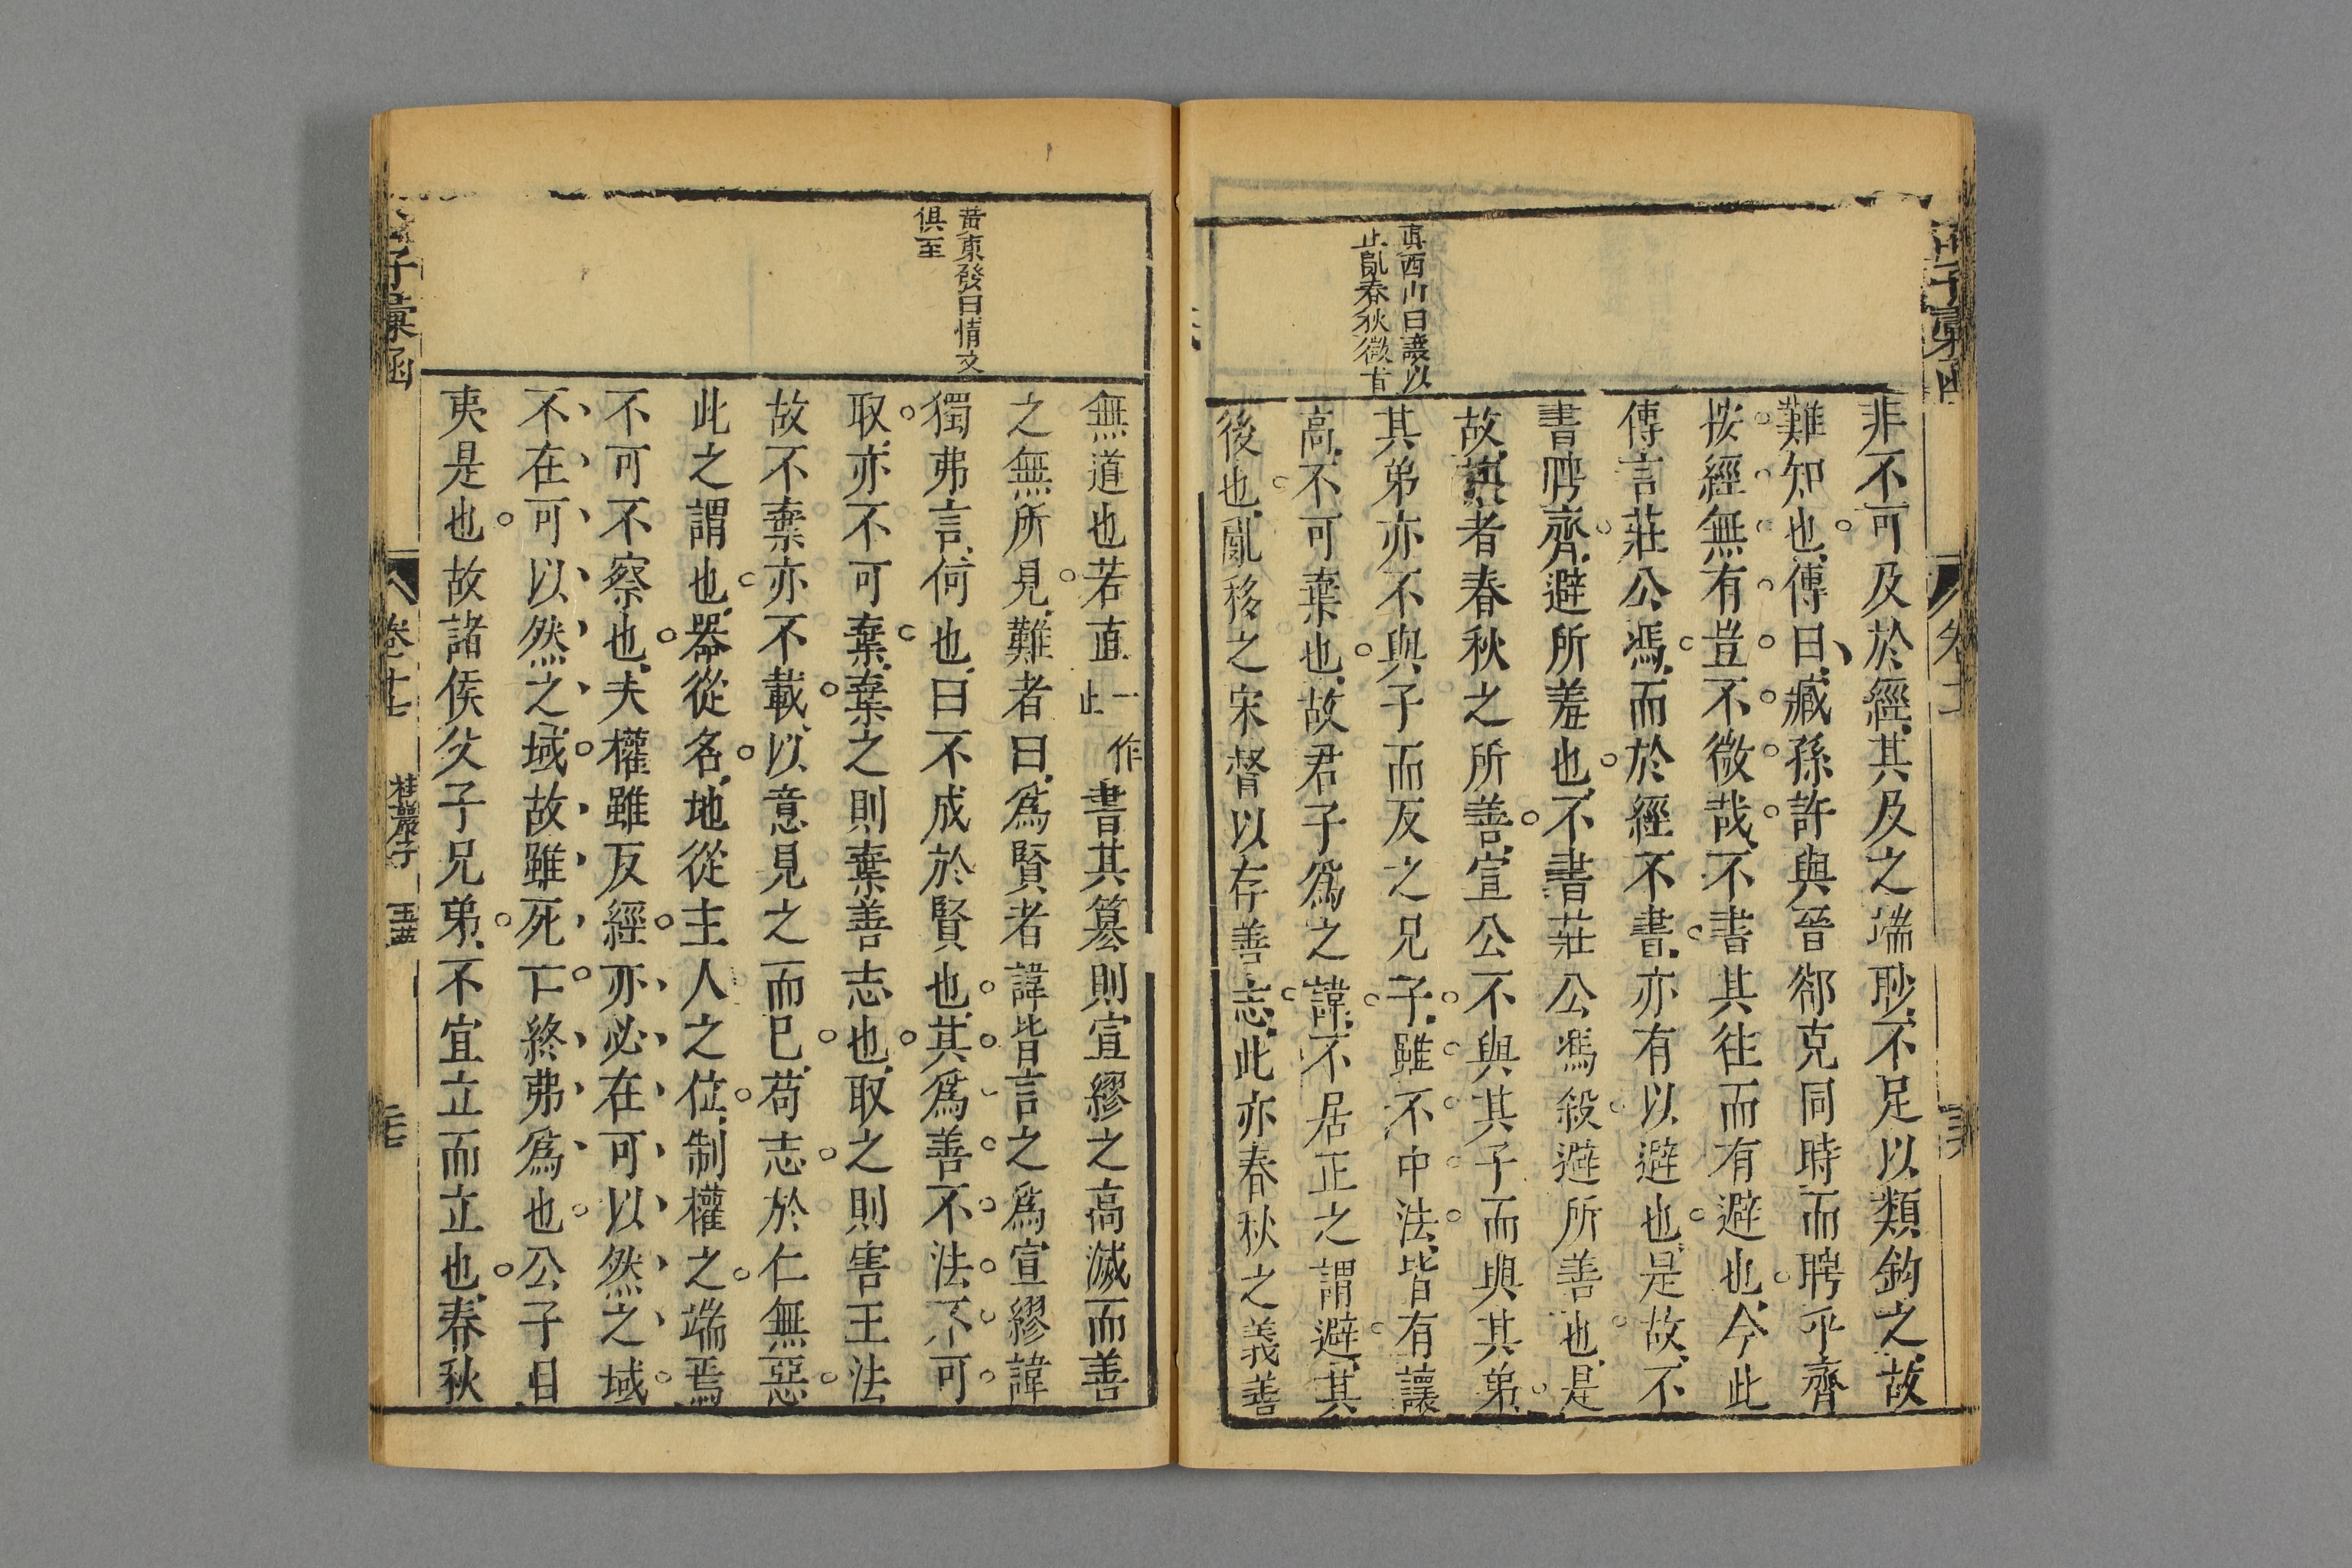 真西山曰讓以
止亂春秋微旨
非不可及於經其及之端眇不足以類鈎之故
難知也傳曰臧孫許與晉郤克同時而聘乎齊
按經無有豈不微哉不書其徃而有避也今此
傳言莊公馮而於經不書亦有以避也是故不
書聘齊避所羞也不書莊公馮殺避所善也是
故讓者春秋之所善宣公不與其子而與其弟
其弟亦不與子而反之兄子雖不中法皆有讓
高不可棄也故君子爲之諱不居正之謂避其
後也亂移之宋督以存善志此亦春秋之義善
黃東發曰情文
俱至
無道也若直一作止書其簒則宣繆之高滅而善
之無所見難者曰爲賢者諱皆言之爲宣繆諱
獨弗言何也曰不成於賢也其爲善不法不可
取亦不可棄棄之則棄善志也取之則害王法
故不棄亦不載以意見之而已苟志於仁無惡
此之謂也器從名地從主人之位制權之端焉
不可不察也夫權雖反經亦必在可以然之域
不在可以然之域故雖死亡終弗爲也公子目
夷是也故諸侯父子兄弟不宜立而立也春秋
子彙函
卷十七
桂巖子